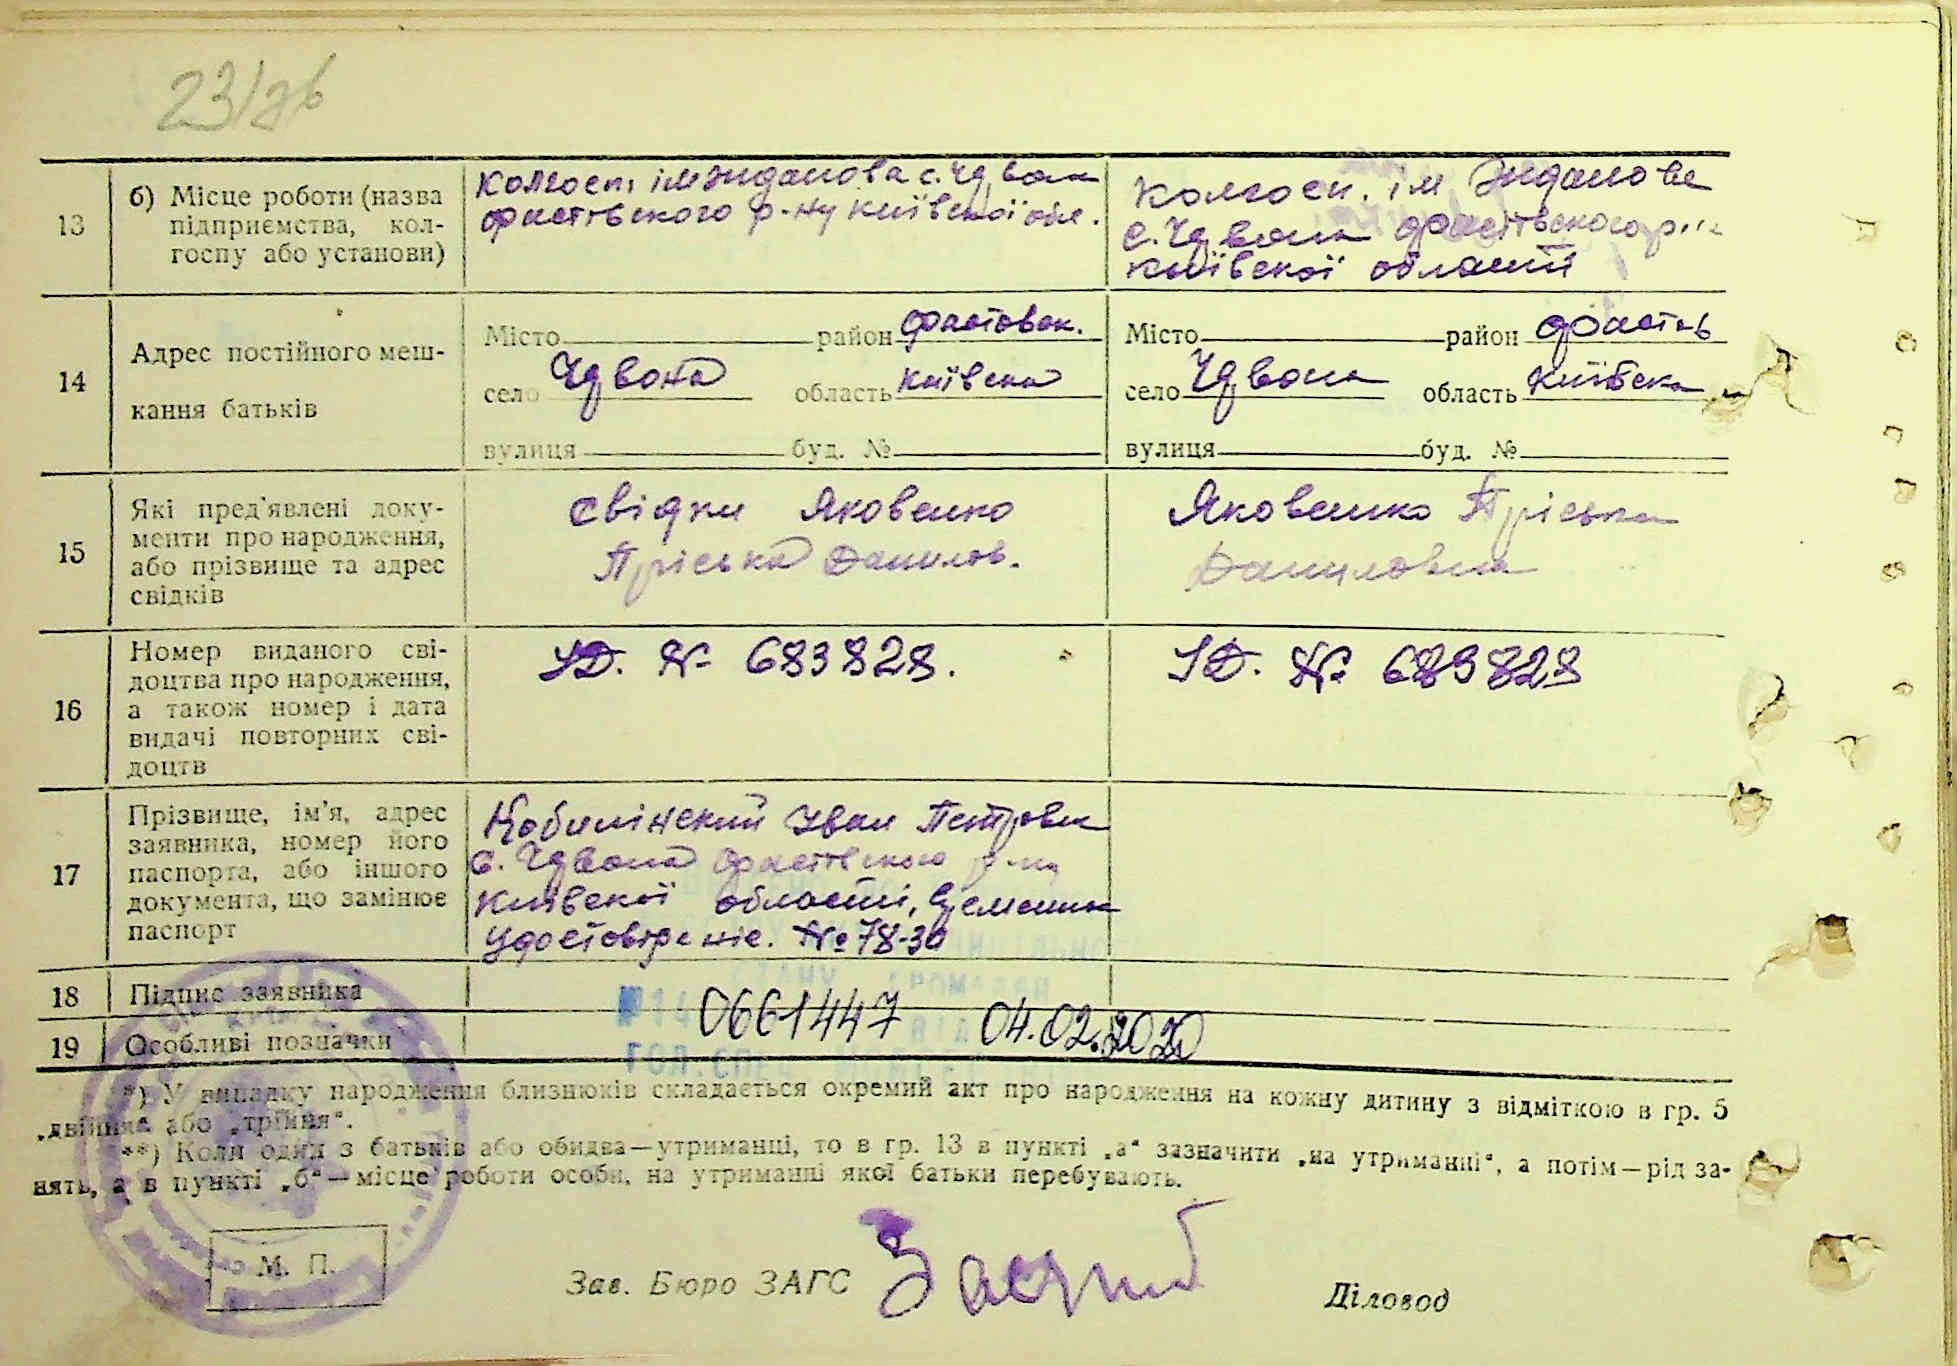 23/зв
13
б) Місце роботи (назва
підприємства, кол-
госпу або установи)
колгосп, ім Жданова с. Чдвона
Фастівского р-ну київскої обл.
колгосп. ім Жданова
с. Чдвона Фастівского р-н
київскої області
14
Адрес постійного меш-
кання батьків
Місто район Фастовск.
село Чдвона область київска
вулиця буд. №
Місто район Фастів
село Чдвона область київска
вулиця буд. №
15
Які пред'явлені доку-
менти про народження,
або прізвище та адрес
свідків
свідки Яковенко
Пріська Данилов.
Яковенко Пріська
Даниловна
16
Номер виданого сві-
доцтва про народження,
а також номер і дата
видачі повторних сві-
доцтв
УД. № 683828.
УД. № 683828
17
Прізвище, ім'я, адрес
заявника, номер його
паспорта, або іншого
документа, що замінює
паспорт
Кобилінский Іван Петровн
с. Чдвона Фастівского р-на
Київскої області,
удостовіреніє. № 78-30
18
Підпис заявника
19
Особливі позначки
0661447 04.02.2020
*) У випадку народження близнюків складається окремий акт про народження на кожну дитину з відміткою в гр. 5
„двійня“ або „трійня“.
**) Коли один з батьків або обидва—утриманці, то в гр. 13 в пункті „а“ зазначити „на утриманні“, а потім—рід за-
нять, а в пункті „б“—місце роботи особи, на утриманні якої батьки перебувають.
М. П.
Зав. Бюро ЗАГС
Діловод